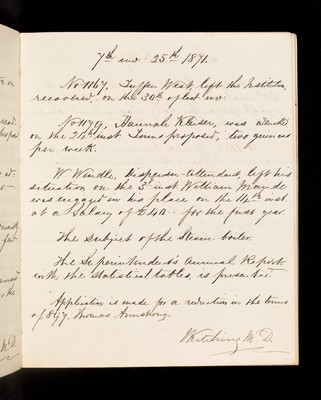 7th mo. 25th 1871.
No 1167, Tuffen West, left the Institution,
recovered, on the 30th of last mo:
No 1179, Hannah Kleiser, was admitted
on the inst. Terms proposed, two guineas
per week.
W Windle, Dispenser-Attendant, left his
situation on the 3d inst William
was engaged in his place on the 14th inst
at a Salary of £40 - for the first year.
The subject of the Steam-boiler.
The Superintendent's Annual Report,
with the statistical tables, is presented.
Application is made for a reduction in the terms
of 897, Thomas Armstrong.
Kitching M.D.